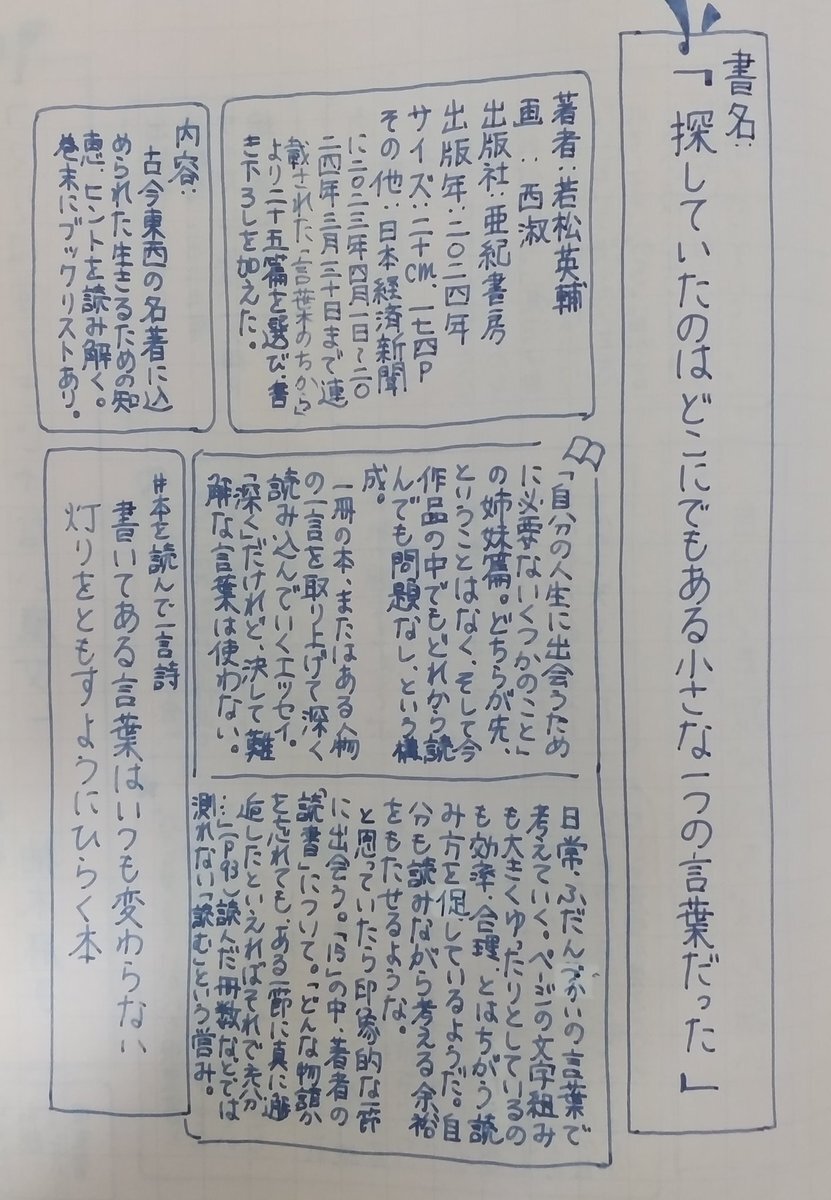 書名:
『探していたのはどこにでもある小さな一つの言葉だった』
著者:若松英輔
画:西淑
出版社:亜紀書房
出版年:二〇二四年
サイズ:二十cm、一七四P
その他:日本経済新聞
に二〇二三年四月一日〜二〇
二四年三月三十日まで連
載された「言葉のちから」
より二十五篇を選び、書
き下ろしを加えた。
内容:
古今東西の名著に込
められた生きるための知
恵、ヒントを読み解く。
巻末にブックリストあり。
「自分の人生に出会うため
に必要ないくつかのこと」
の姉妹篇。どちらが先、
ということはなく、そして今
作品の中でもどれから読
んでも問題なし、という構
成。
一冊の本、またはある人物
の一言を取り上げて深く
読み込んでいくエッセイ。
「深く」だけれど、決して難
解な言葉は使わない。
日常、ふだんづかいの言葉で
考えていく。ページの文字組み
も大きくゆったりとしているの
も効率、合理、とはちがう読
み方を促しているようだ。自
分も読みながら考える余裕
をもたせるような。
と思っていたら印象的な一節
に出会う。「15」の中、著者の
「読書」について。「どんな物語か
を忘れても、ある一節に真に邂
逅したといえればそれで充分
…」(P93)読んだ冊数などでは
測れない「読む」という営み。
#本を読んで一言詩
書いてある言葉はいつも変わらない
灯りをともすようにひらく本